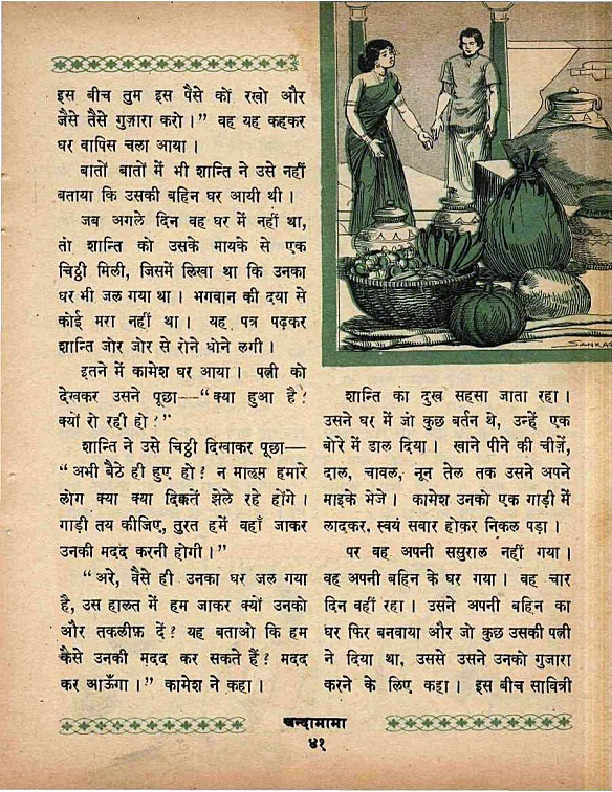 इस बीच तुम इस पैसे कों रखो और
जैसे तैसे गुज़ारा करो।” वह यह कहकर
घर वापिस चला आया।
बातों बातों में भी शान्ति ने उसे नहीं
बताया कि उसकी बहिन घर आयी थी।
जब अगले दिन वह घर में नहीं था,
तो शान्ति को उसके मायके से एक
चिट्ठी मिली, जिसमें लिखा था कि उनका
घर भी जल गया था। भगवान की दया से
कोई मरा नहीं था। यह पत्र पढ़कर
शान्ति जोर जोर से रोने धोने लगी।
इतने में कामेश घर आया। पत्नी को
देखकर उसने पूछा—“क्या हुआ है?
क्यों रो रही हो?”
शान्ति ने उसे चिट्ठी दिखाकर पूछा—
“अभी बैठे ही हुए हो? न मालूम हमारे
लोग क्या क्या दिक्कतें झेले रहे होंगे।
गाड़ी तय कीजिए, तुरत हमें वहाँ जाकर
उनकी मदद करनी होगी।”
“अरे, वैसे ही उनका घर जल गया
है, उस हालत में हम जाकर क्यों उनको
और तकलीफ़ दें? यह बताओ कि हम
कैसे उनकी मदद कर सकते हैं? मदद
कर आऊँगा।” कामेश ने कहा।
SANKAR
शान्ति का दुख सहसा जाता रहा।
उसने घर में जो कुछ बर्तन थे, उन्हें एक
बोरे में डाल दिया। खाने पीने की चीज़ें,
दाल, चावल, नून तेल तक उसने अपने
माइके भेजें। कामेश उनको एक गाड़ी में
लादकर, स्वयं सवार होकर निकल पड़ा।
पर वह अपनी ससुराल नहीं गया।
वह अपनी बहिन के घर गया। वह चार
दिन वहीं रहा। उसने अपनी बहिन का
घर फिर बनवाया और जो कुछ उसकी पत्नी
ने दिया था, उससे उसने उनको गुजारा
करने के लिए कहा। इस बीच सावित्री
चन्दामामा
४१